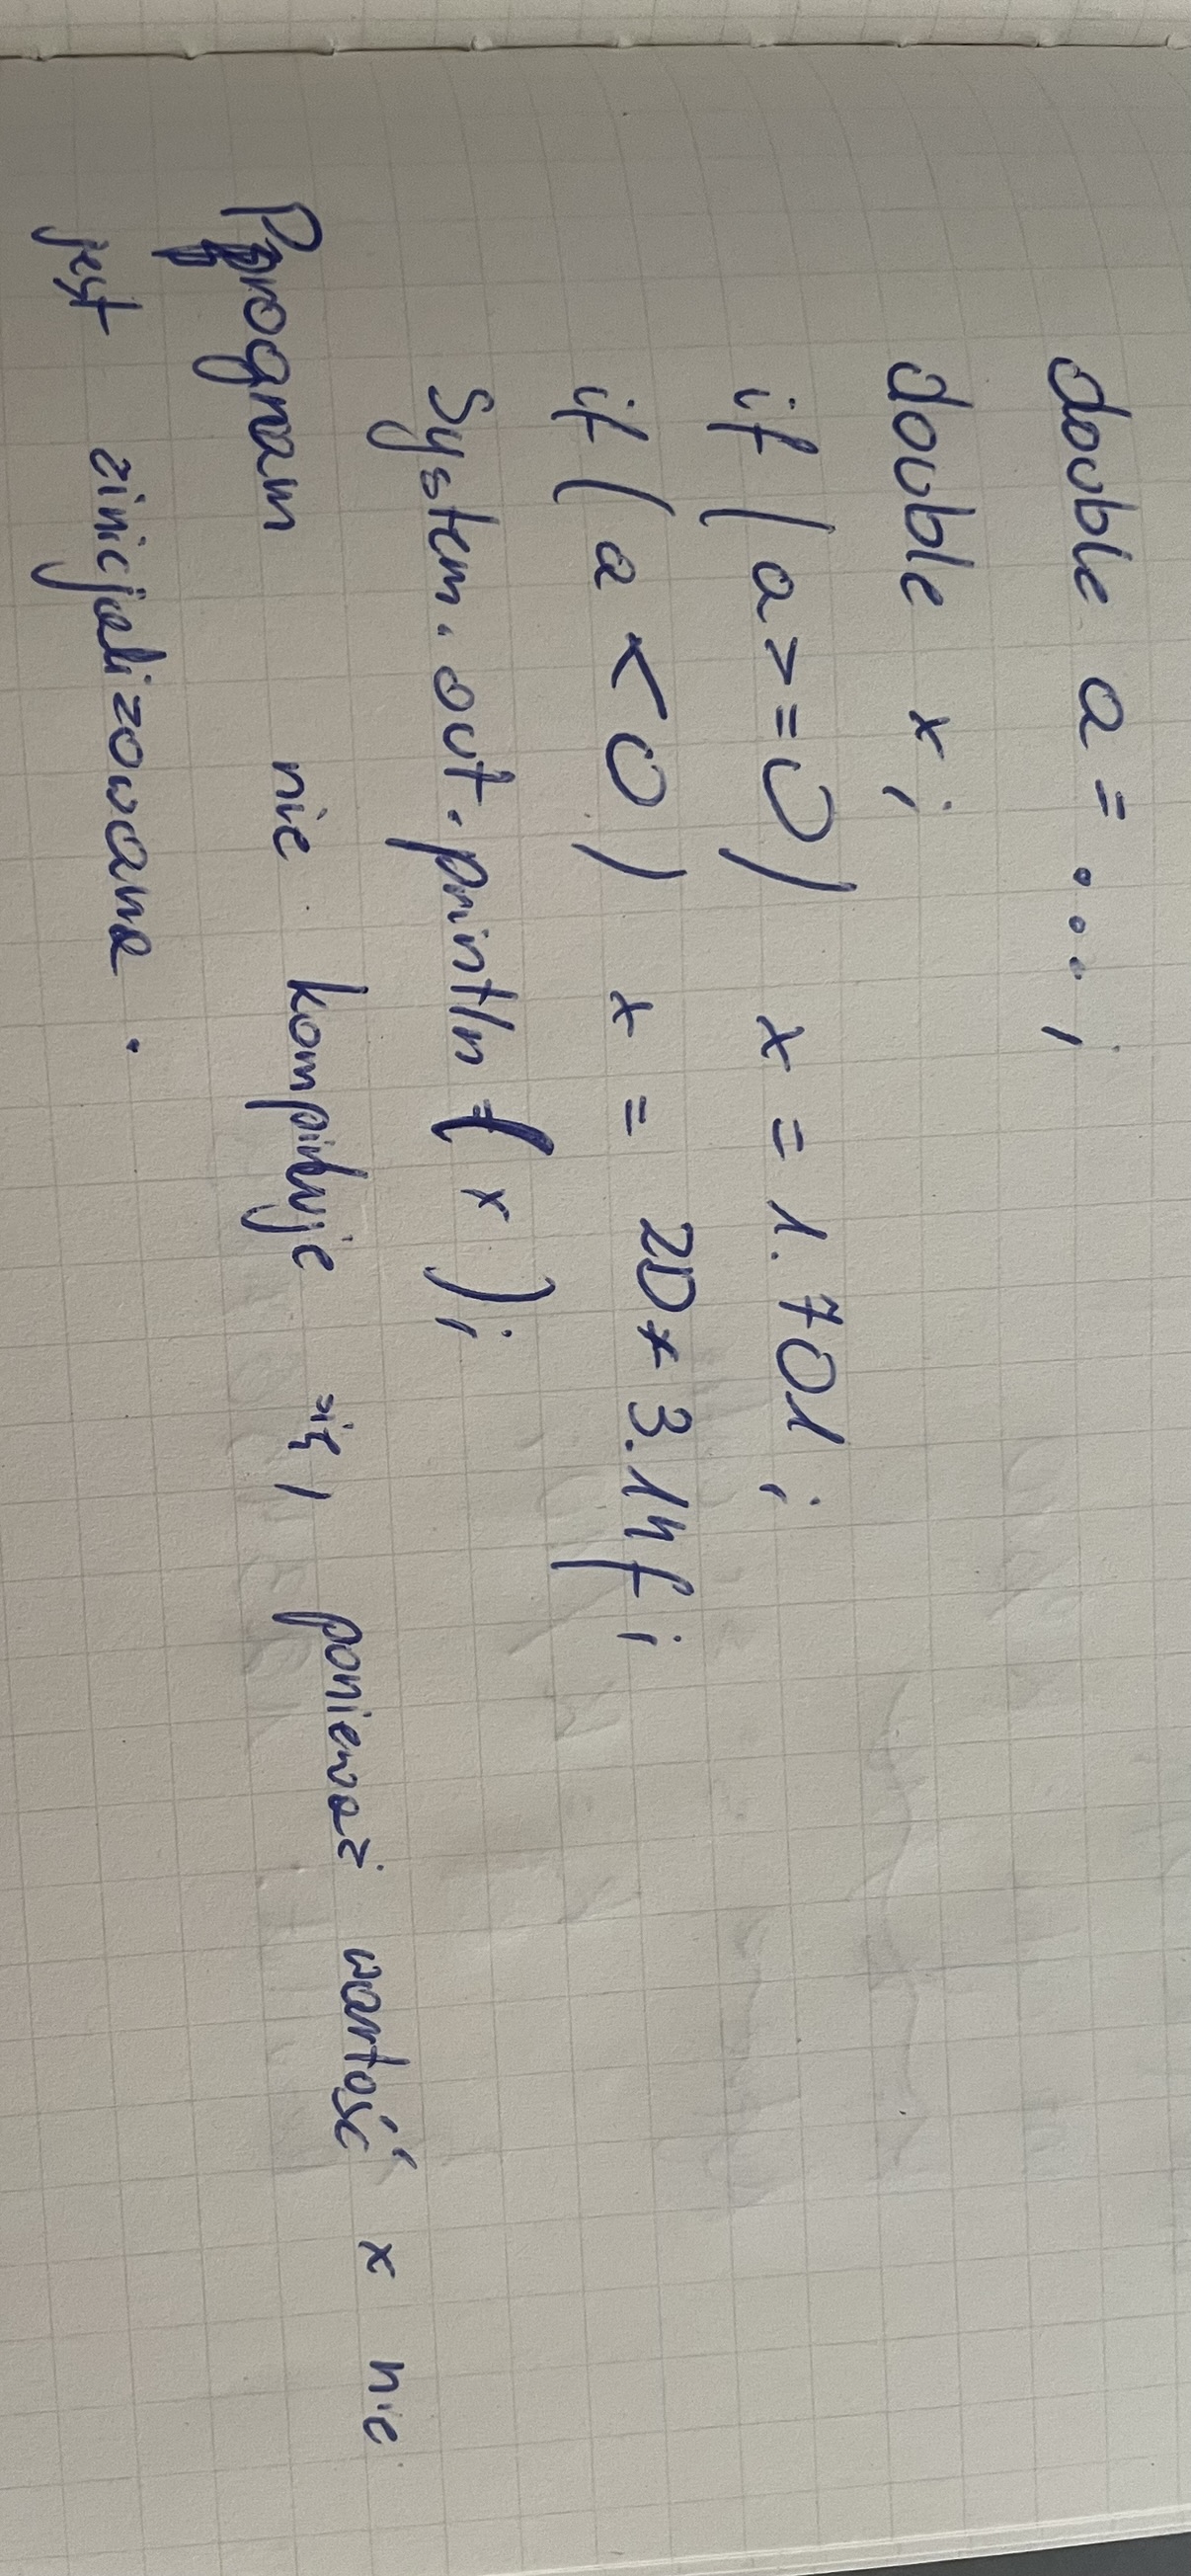 double a = ...;
double x;
if (a>=0) x = 1.701;
if (a <0) x = 2D * 3.14f;
System.out.println (x);
Program nie kompiluje się, ponieważ wartość x nie
jest zinicjalizowana.